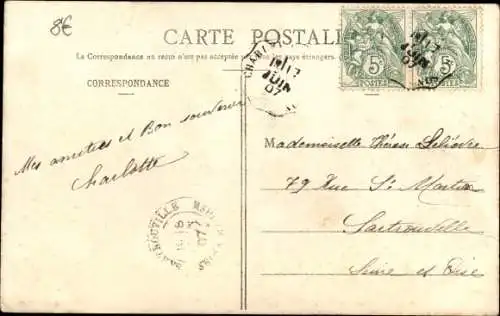 8€
CARTE POSTALE
La Correspondance au recto n'est pas acceptée par tous les pays étrangers.
CORRESPONDANCE
17
JUIN
07
5c
POSTES
5c
POSTES
Mes amitiés et Bon souvenir
Charlotte
Mademoiselle Thérèse
79 Rue St Martin
Sartrouville
Seine et Oise
SARTROUVILLE
07